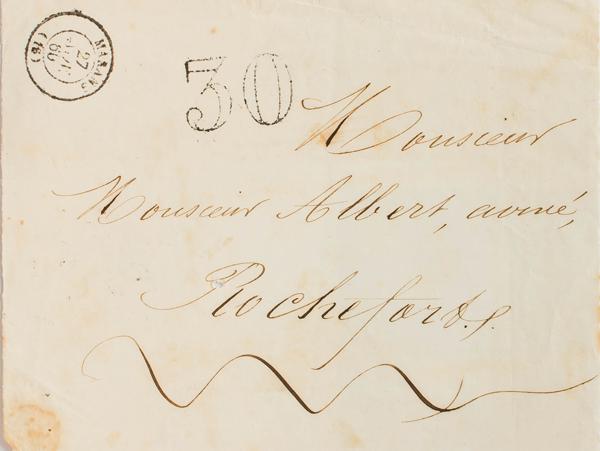 MARANS
27
60
(16)
30
Monsieur
Monsieur Albert, avoué,
Rochefort s.